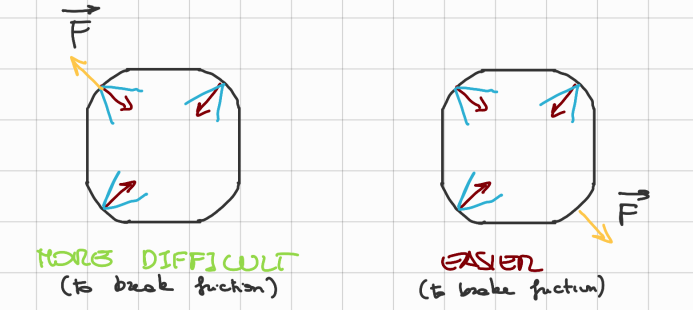 F
F
MORE DIFFICULT
(to break friction)
EASIER
(to brake friction)